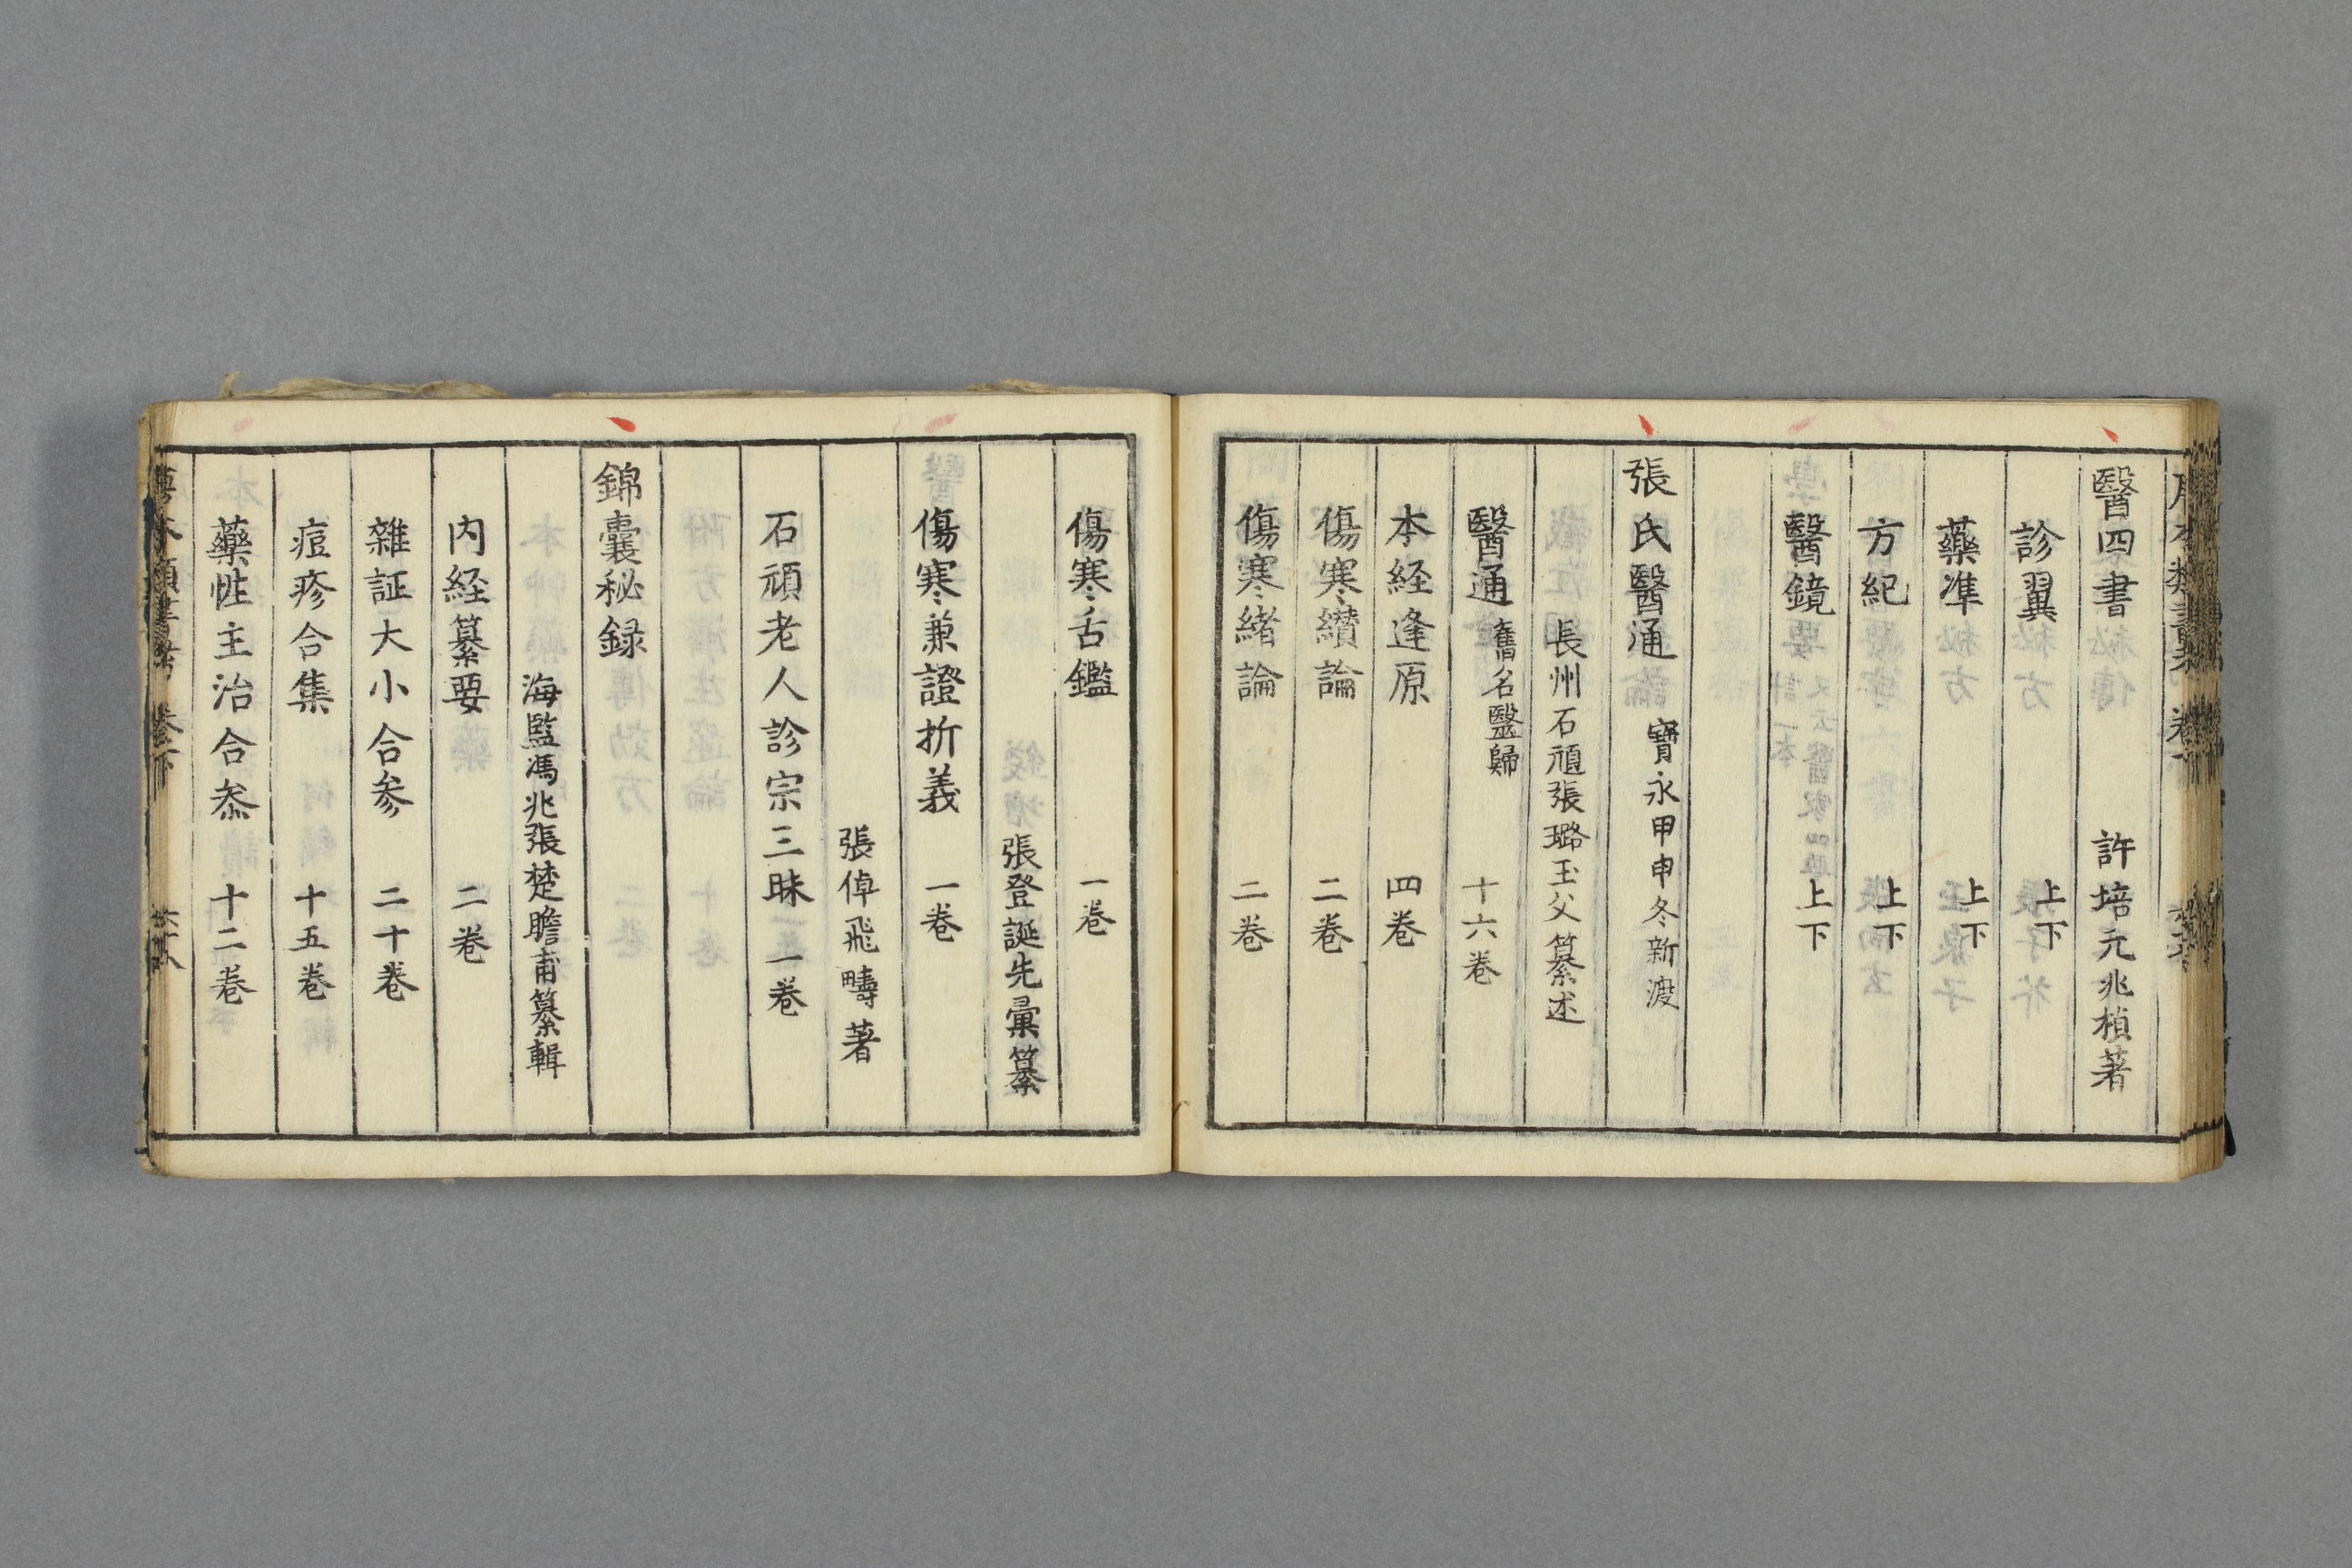 醫四書 許培元兆禎著
診翼 上下
藥準 上下
方紀 上下
醫鏡 上下
張氏醫通 寶永甲申冬新渡
長州石頑張璐玉父纂述
醫通 舊名醫歸 十六卷
本経逢原 四卷
傷寒纘論 二卷
傷寒緒論 二卷
傷寒舌鑑 一卷
張登誕先彙纂
傷寒兼證折義 一卷
張倬飛疇著
石頑老人診宗三昧 一卷
錦囊秘録
海監馮兆張楚瞻甫纂輯
内経纂要 二卷
雜証大小合参 二十卷
痘疹合集 十五卷
藥性主治合叅 十二卷